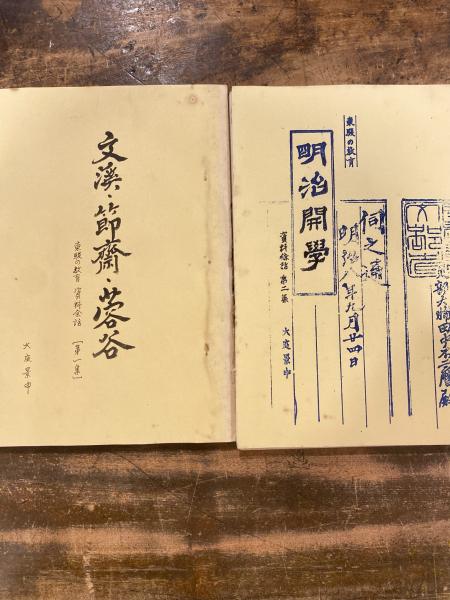 文溪・節齋・蓉谷
東駿の教育 資料余話
[第一集]
大庭景申
東駿の教育
明治開學
資料餘話 第二集
大庭景申
伺之通
明治八年九月廿四日